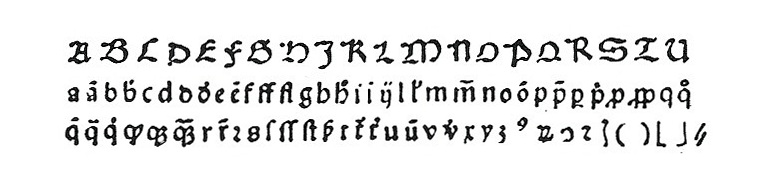 A B C D E F G H I K L M N O P Q R S T U
a ā b b̄ c d ꝺ ꝺ̄ e ē f ff fl g h h̄ i ī ÿ l l̓ m m̄ n o ō p p̄ ꝑ p̊ ꝓ q q̊
q̄ q̊ r r̄ ꝛ s ſ ſſ ſt t u ū v v̄ x y ʒ ꝰ ɔ ( ) ⌊ ⌋